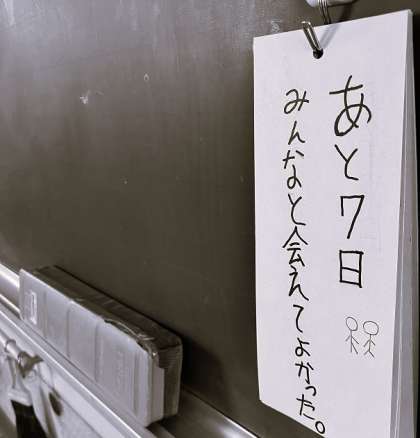 あと7日
みんなと会えてよかった。